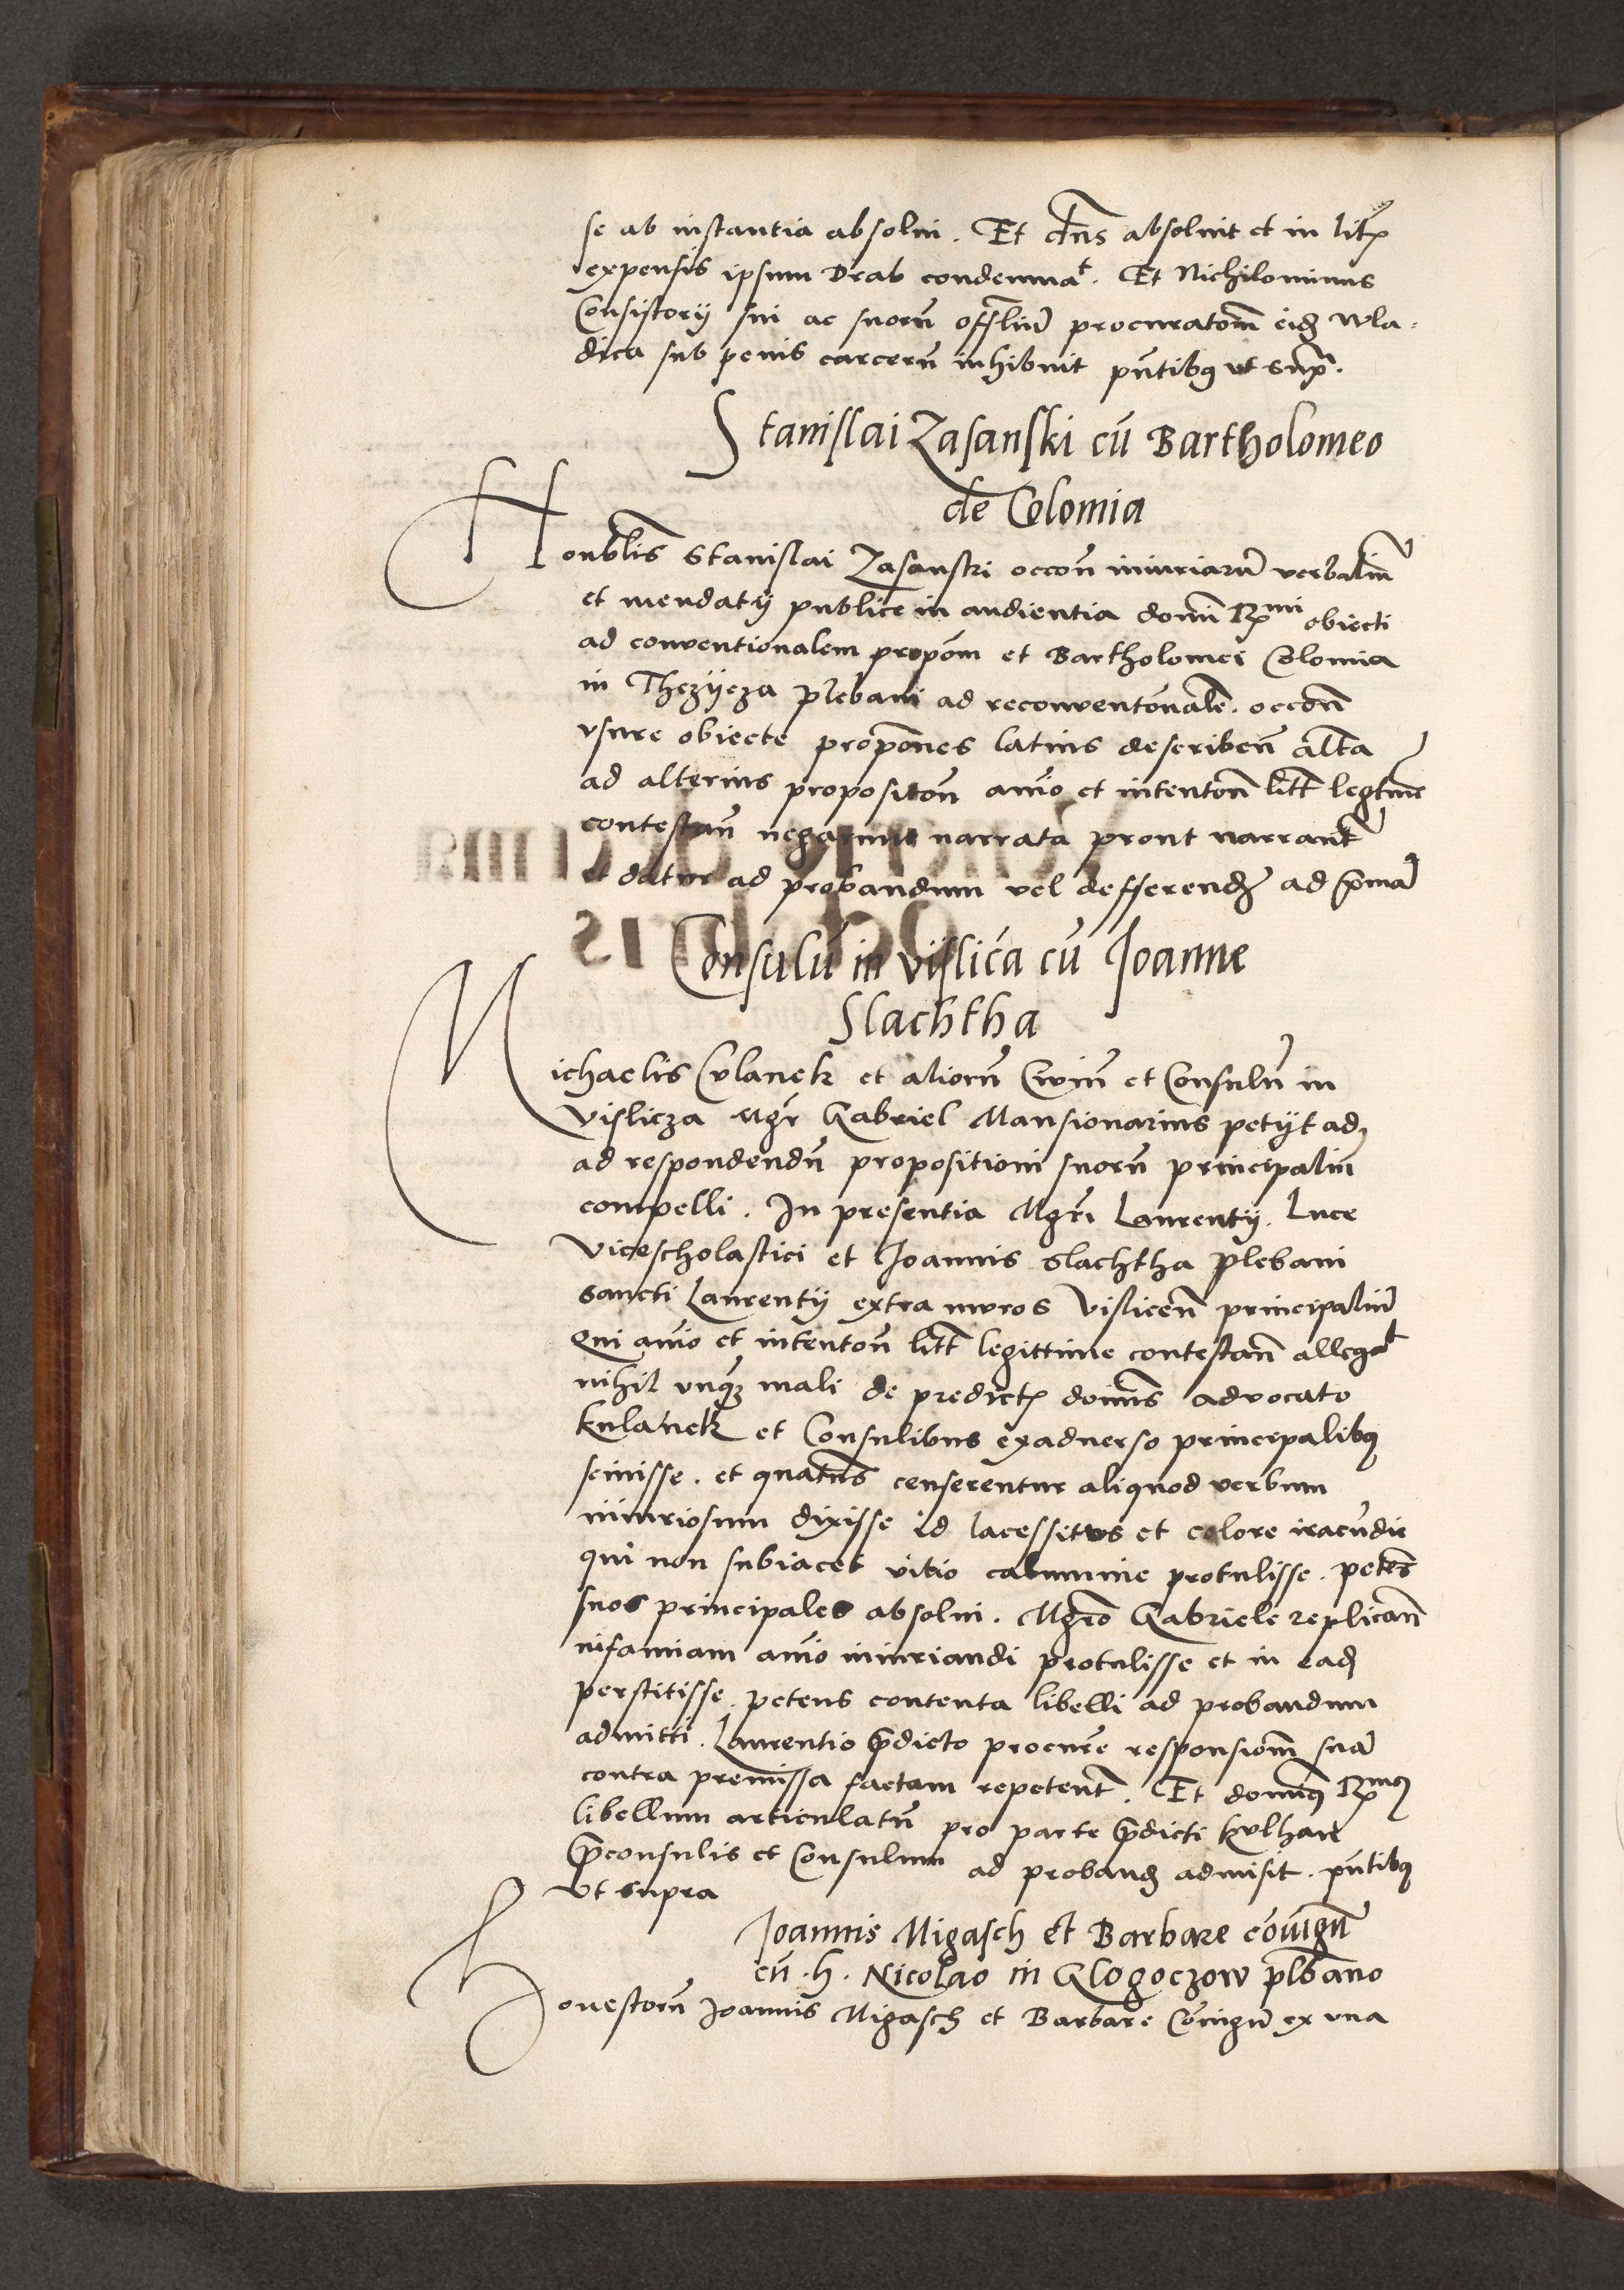 se ab instantia absolui. Et dns absoluit et in litis
expensis ipsum Drab condemnat. Et Nichilominus
Consistorij sui ac suorum officialium procuratom eid Wla-
dica sub penis carcerum inhibuit pntibus ut supra.
Stanislai Zasanski cū Bartholomeo
de Colomia
Honbilis Stanislai Zasanski occōn iniuriarū verbaliū
et mendatij publice in audientia domi Rmi obiecti
ad conventionalem propōm et Bartholomei Colomia
in Thczijcza plebani ad reconventōnalē. occōn
vsure obiecte propōnes latius describen alta
ad alterius propositōn aīo et intentōn litt legtme
contestan negarunt narrata prout narrant
et datur ad probandum vel defferend ad pmā
Consulū in vislica cū Joanne
Slachtha
Michaelis Culanek et aliorū Civiū et Consulū in
Vislicza Mgr Gabriel Mansionarius petijt ad,
ad respondendū propositioni suorū principaliū
compelli. In presentia Mgri Laurentij. Luce
Vicescholastici et Joannis Slachtha plebani
Sancti Laurentij extra muros Vislicen principaliū
Qui aīo et intentōn litt legittime contestan allegat
nihil unqz mali de predictis domīs advocato
Kulanek et Consulibus exaduerso principalibus
scivisse. et quatnus censerentur aliquod verbum
iniuriosum dixisse id lacessitus et calore iracūdie
qui non subiacet vitio calumnie protulisse. petens
suos principales absolui. Mgro Gabriele replicān
infamiam aīo iniuriandi protulisse et in ead
perstitisse. petens contenta libelli ad probandum
admitti. Laurentio pdicto procurē responsiom suā
contra premissa factam repetent. Et domīus Rmus
libellum articulatū pro parte pdicti kulhan
pconsulis et Consulum ad proband admisit. pntibus
ut supra
Joannis Migasch et Barbare cōiugū
cū .h. Nicolao in Glogoczow plbano
Honestorū Joannis Migasch et Barbare Cōiugū ex una